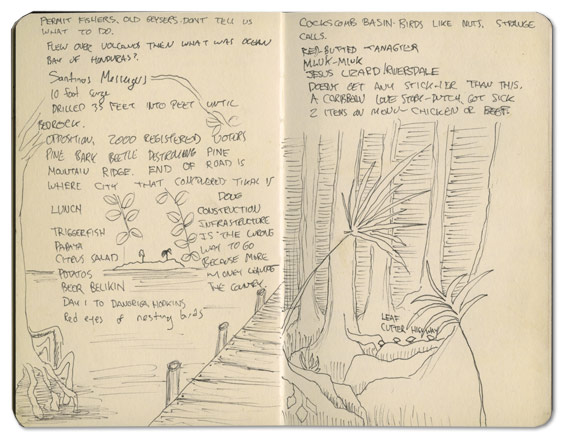 PERMIT FISHERS. OLD GEYSERS. DON'T TELL US
WHAT TO DO.
FLEW OVER VOLCANOS THEN WHAT WAS OCEAN
BAY OF HONDURAS?
Santinos Messages
10 foot surge
DRILLED 35 FEET INTO PEET UNTIL
BEDROCK.
OPPOSITION, 2000 REGISTERED VOTERS
PINE BARK BEETLE DESTROYING PINE
MOUNTAIN RIDGE. END OF ROAD IS
WHERE CITY THAT CONQUERED TIKAL IS
LUNCH
TRIGGERFISH
PAPAYA
CITRUS SALAD
POTATOS
BEER BELIKIN
DAY 1 TO DANGRIGA, HOPKINS
Red eyes of nesting birds
DOUG
CONSTRUCTION
INFRASTRUCTURE
IS THE WRONG
WAY TO GO
BECAUSE MORE
MONEY LEAVES
THE COUNTRY
COCKSCOMB BASIN-BIRDS LIKE NUTS. STRANGE
CALLS.
RED BUTTED TANAGER
MWUK-MWUK
JESUS LIZARD/RIVERSDALE
DOESN'T GET ANY STICK-IER THAN THIS.
A CARIBBEAN LOVE STORY-DUTCH GOT SICK
2 ITEMS ON MENU-CHICKEN OR BEEF
LEAF
CUTTER HIGHWAY